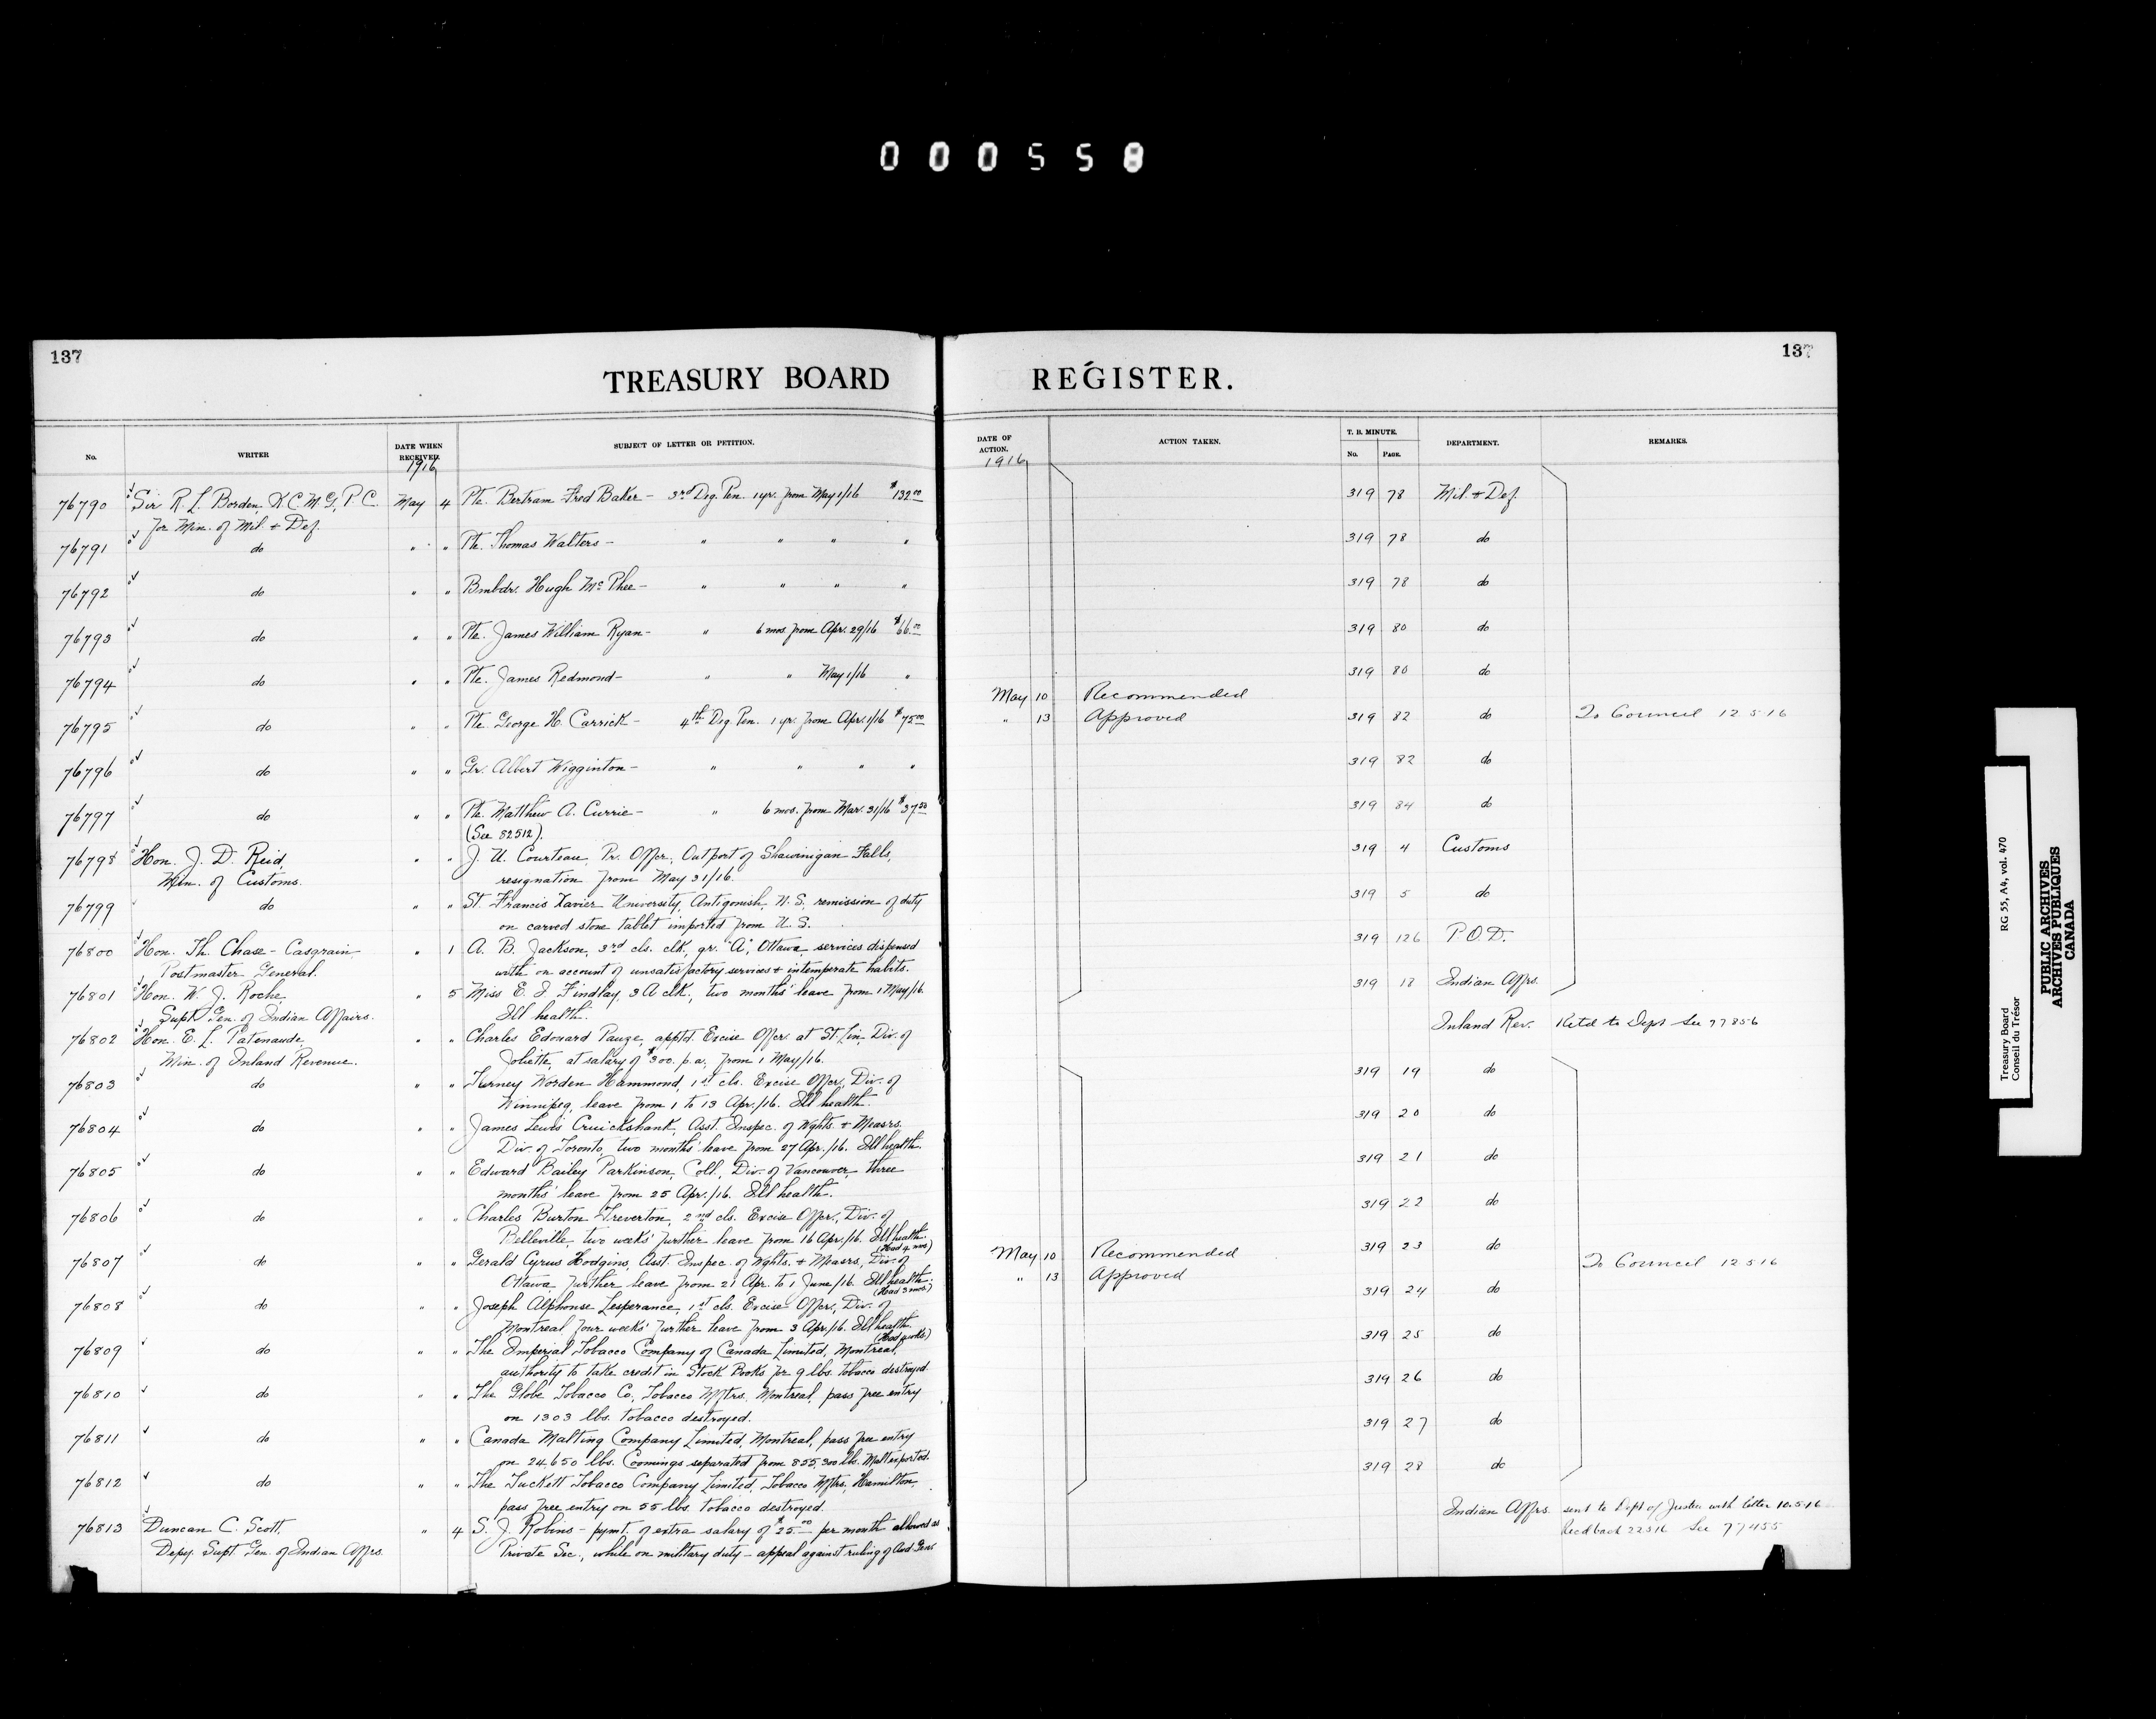 000558
137
TREASURY BOARD
No.
WRITER
DATE WHEN RECEIVED.
SUBJECT OF LETTER OR PETITION.
1916
76790 Sir R. L. Borden, K.C.M.G., P.C. May 4 Pte. Bertram Fred Baker - 3rd Deg. Pen. 1 yr. from May 1/16 $132.00
for Min. of Mil. & Def.
76791 do " " Pte. Thomas Walters - " " " "
76792 do " " Bmbdr. Hugh McPhee - " " " "
76793 do " " Pte. James William Ryan - " 6 mos. from Apr. 29/16 $66.00
76794 do " " Pte. James Redmond - " " May 1/16 "
76795 do " " Pte. George H. Carrick - 4th Deg. Pen. 1 yr. from Apr. 1/16 $75.00
76796 do " " Gr. Albert Wigginton - " " " "
76797 do " " Pte. Matthew A. Currie - " 6 mos. from Mar. 31/16 $37.50
(See 82512).
76798 Hon. J. D. Reid, " " J. U. Courteau, Pr. Offcr., Outport of Shawinigan Falls,
Min. of Customs. resignation from May 31/16.
76799 do " " St. Francis Xavier University, Antigonish, N.S. remission of duty
on carved stone tablet imported from U.S.
76800 Hon. Th. Chase-Casgrain, " 1 A. B. Jackson, 3rd cls. clk, gr. "A", Ottawa, services dispensed
Postmaster General. with on account of unsatisfactory services & intemperate habits.
76801 Hon. W. J. Roche, " 5 Miss E. I. Findlay, 3 A clk., two months' leave from 1 May/16.
Supt. Gen. of Indian Affairs. Ill health.
76802 Hon. E. L. Patenaude, " " Charles Edouard Pauze, apptd. Excise Offcr. at St. Lin, Div. of
Min. of Inland Revenue. Joliette, at salary of $300. p.a., from 1 May/16.
76803 do " " Turney Worden Hammond, 1st cls. Excise Offcr., Div. of
Winnipeg, leave from 1 to 13 Apr./16. Ill health.
76804 do " " James Lewis Cruickshank, Asst. Inspec. of Wghts. & Measrs.
Div. of Toronto, two months' leave from 27 Apr./16. Ill health.
76805 do " " Edward Bailey Parkinson, Coll., Div. of Vancouver, three
months' leave from 25 Apr./16. Ill health.
76806 do " " Charles Burton Treverton, 2nd cls. Excise Offcr., Div. of
Belleville, two weeks' further leave from 16 Apr./16. Ill health.
(Had 4 mos)
76807 do " " Gerald Cyrus Hodgins, Asst. Inspec. of Wghts. & Measrs., Div. of
Ottawa, further leave from 21 Apr. to 1 June/16. Ill health.
(Had 3 mos.)
76808 do " " Joseph Alphonse Lesperance, 1st cls. Excise Offcr., Div. of
Montreal, four weeks' further leave from 3 Apr./16. Ill health.
76809 do " " The Imperial Tobacco Company of Canada Limited, Montreal,
authority to take credit in Stock Books for 9 lbs. tobacco destroyed.
76810 do " " The Globe Tobacco Co., Tobacco Mftrs. Montreal, pass free entry
on 1303 lbs. tobacco destroyed.
76811 do " " Canada Malting Company Limited, Montreal, pass free entry
on 24,650 lbs. Coomings separated from 855,300 lbs. Malt exported.
76812 do " " The Tuckett Tobacco Company Limited, Tobacco Mftrs., Hamilton,
pass free entry on 55 lbs. tobacco destroyed.
76813 Duncan C. Scott, " 4 S. J. Robins - pymt. of extra salary of $25.00 per month allowed as
Depy. Supt. Gen. of Indian Affrs. Private Sec., while on military duty - appeal against ruling of Aud. Genl
137
REGISTER.
DATE OF ACTION.
ACTION TAKEN.
T. B. MINUTE.
No. PAGE.
DEPARTMENT.
REMARKS.
1916
319 78 Mil. & Def.
319 78 do
319 78 do
319 80 do
319 80 do
May 10 Recommended
" 13 Approved 319 82 do To Council 12 5 16
319 82 do
319 84 do
319 4 Customs
319 5 do
319 126 P.O.D.
319 18 Indian Affrs.
Inland Rev. Retd to Dept See 77856
319 19 do
319 20 do
319 21 do
319 22 do
319 23 do
May 10 Recommended
To Council 12 5 16
" 13 Approved
319 24 do
319 25 do
319 26 do
319 27 do
319 28 do
Indian Affrs. sent to Dept of Justice with letter 10.5.16
Recd back 22 5 16 See 77455
Treasury Board RG 55, A4, vol. 470
Conseil du Trésor
PUBLIC ARCHIVES
ARCHIVES PUBLIQUES
CANADA